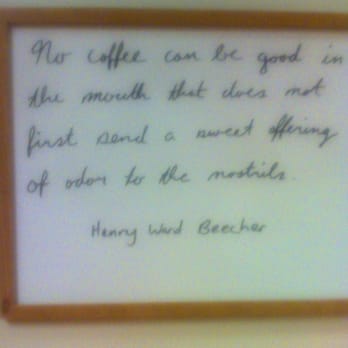 No coffee can be good in
the mouth that does not
first send a sweet offering
of odor to the nostrils.
Henry Ward Beecher